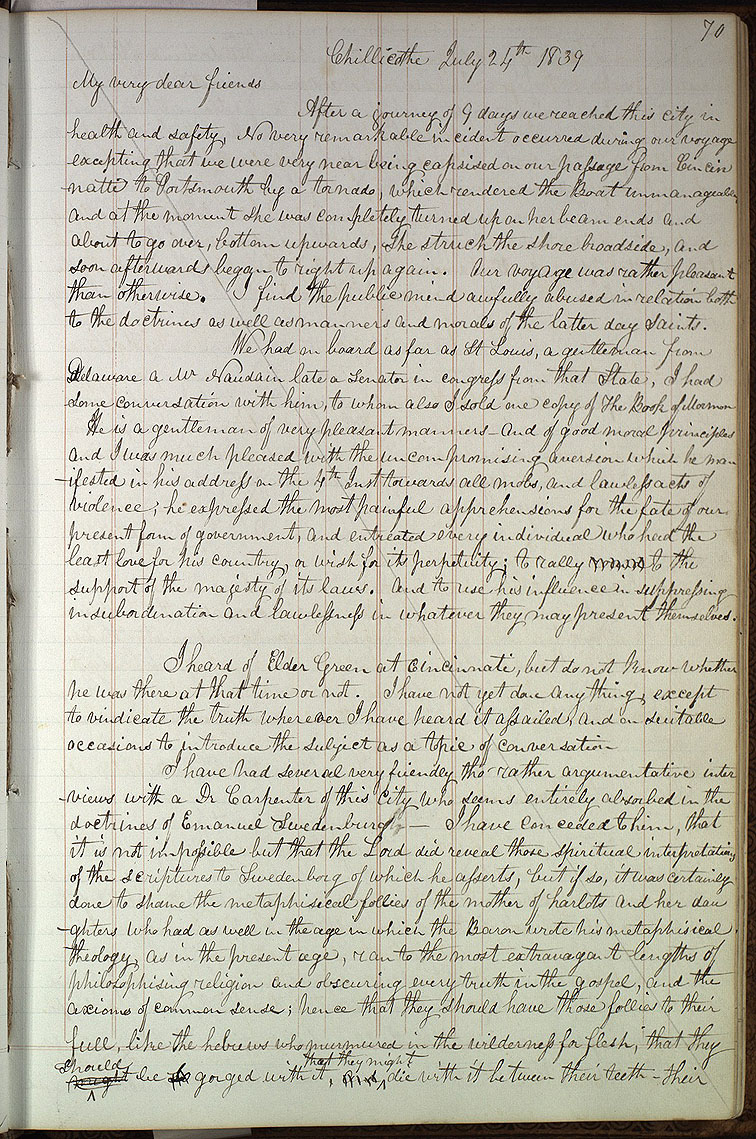 70
Chillicothe July 24th 1839
My very dear friends
After a journey of 9 days we reached this city in
health and safety, No very remarkable incident occurred during our voyage
excepting that we were very near being capsised on our passage from Cincin
natti to Portsmouth by a tornado, which rendered the Boat unmanageable
and at the moment She was completely turned up on her beam ends and
about to go over, bottom upwards, She struck the shore broadside, and
soon afterwards began to right up again. Our voyage was rather pleasant
than otherwise. I find the public mind awfully abused in relation both
to the doctrines as well as manners and morals of the latter day Saints.
We had on board as far as St Louis, a gentleman from
Delaware a Mr Naudain late a Senator in congress from that State, I had
some conversation with him, to whom also I sold one copy of The Book of Mormon
He is a gentleman of very pleasant manners – and of good moral principles
and I was much pleased with the uncompromising aversion which he man
-ifested in his address on the 4th Inst towards all mobs, and lawless acts of
violence; he expressed the most painful apprehensions for the fate of our
present form of government, and entreated every individual who had the
least love for his country, or wish for its perpetuity; to rally to the
support of the majesty of its laws. And to use his influence in suppressing
insubordination and lawlessness in whatever they may present themselves.
I heard of Elder Green at Cincinnati, but do not know whether
he was there at that time or not. I have not yet done any thing, except
to vindicate the truth wherever I have heard it assailed, and on suitable
occasions to introduce the subject as a topic of conversation
I have had several very friendly tho' rather argumentative inter
-views with a Dr Carpenter of this City who seems entirely absorbed in the
doctrines of Emanuel Swedenburg — I have conceded to him, that
it is not impossible but that the Lord did reveal those spiritual interpretations
of the scriptures to Swedenborg of which he asserts, but if so, it was certainly
done to shame the metaphisical follies of the mother of harlots and her dau
-ghters who had as well in the age in which the Baron wrote his metaphisical
theology, as in the present age, ran to the most extravagant lengths of
philosophising religion and obscuring every truth in the gospel, and the
axioms of common sense; hence that they should have those follies to their
full, like the hebrews who murmured in the wilderness for flesh, that they
should be gorged with it, that they might die with it between their teeth – their